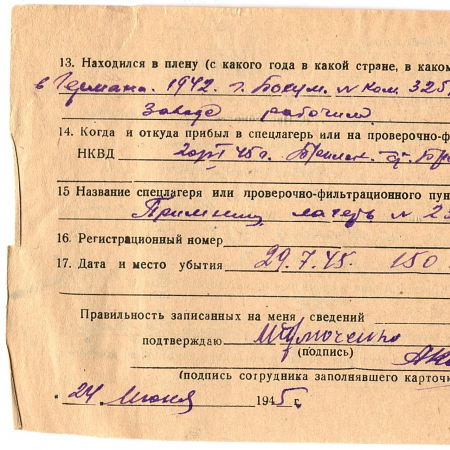 13. Находился в плену (с какого года в какой стране, в каком
в Германа. 1942 г. Бохум. N ком. 325
Заводе рабочим
14. Когда и откуда прибыл в спецлагерь или на проверочно-ф
НКВД 45 г.
15 Название спецлагеря или проверочно-фильтрационного пун
лагерь N 23
16. Регистрационный номер
17. Дата и место убытия 29.7.45. 150
Правильность записанных на меня сведений
подтверждаю
(подпись)
(подпись сотрудника заполнявшего карточк
24 Июня 1945 г.